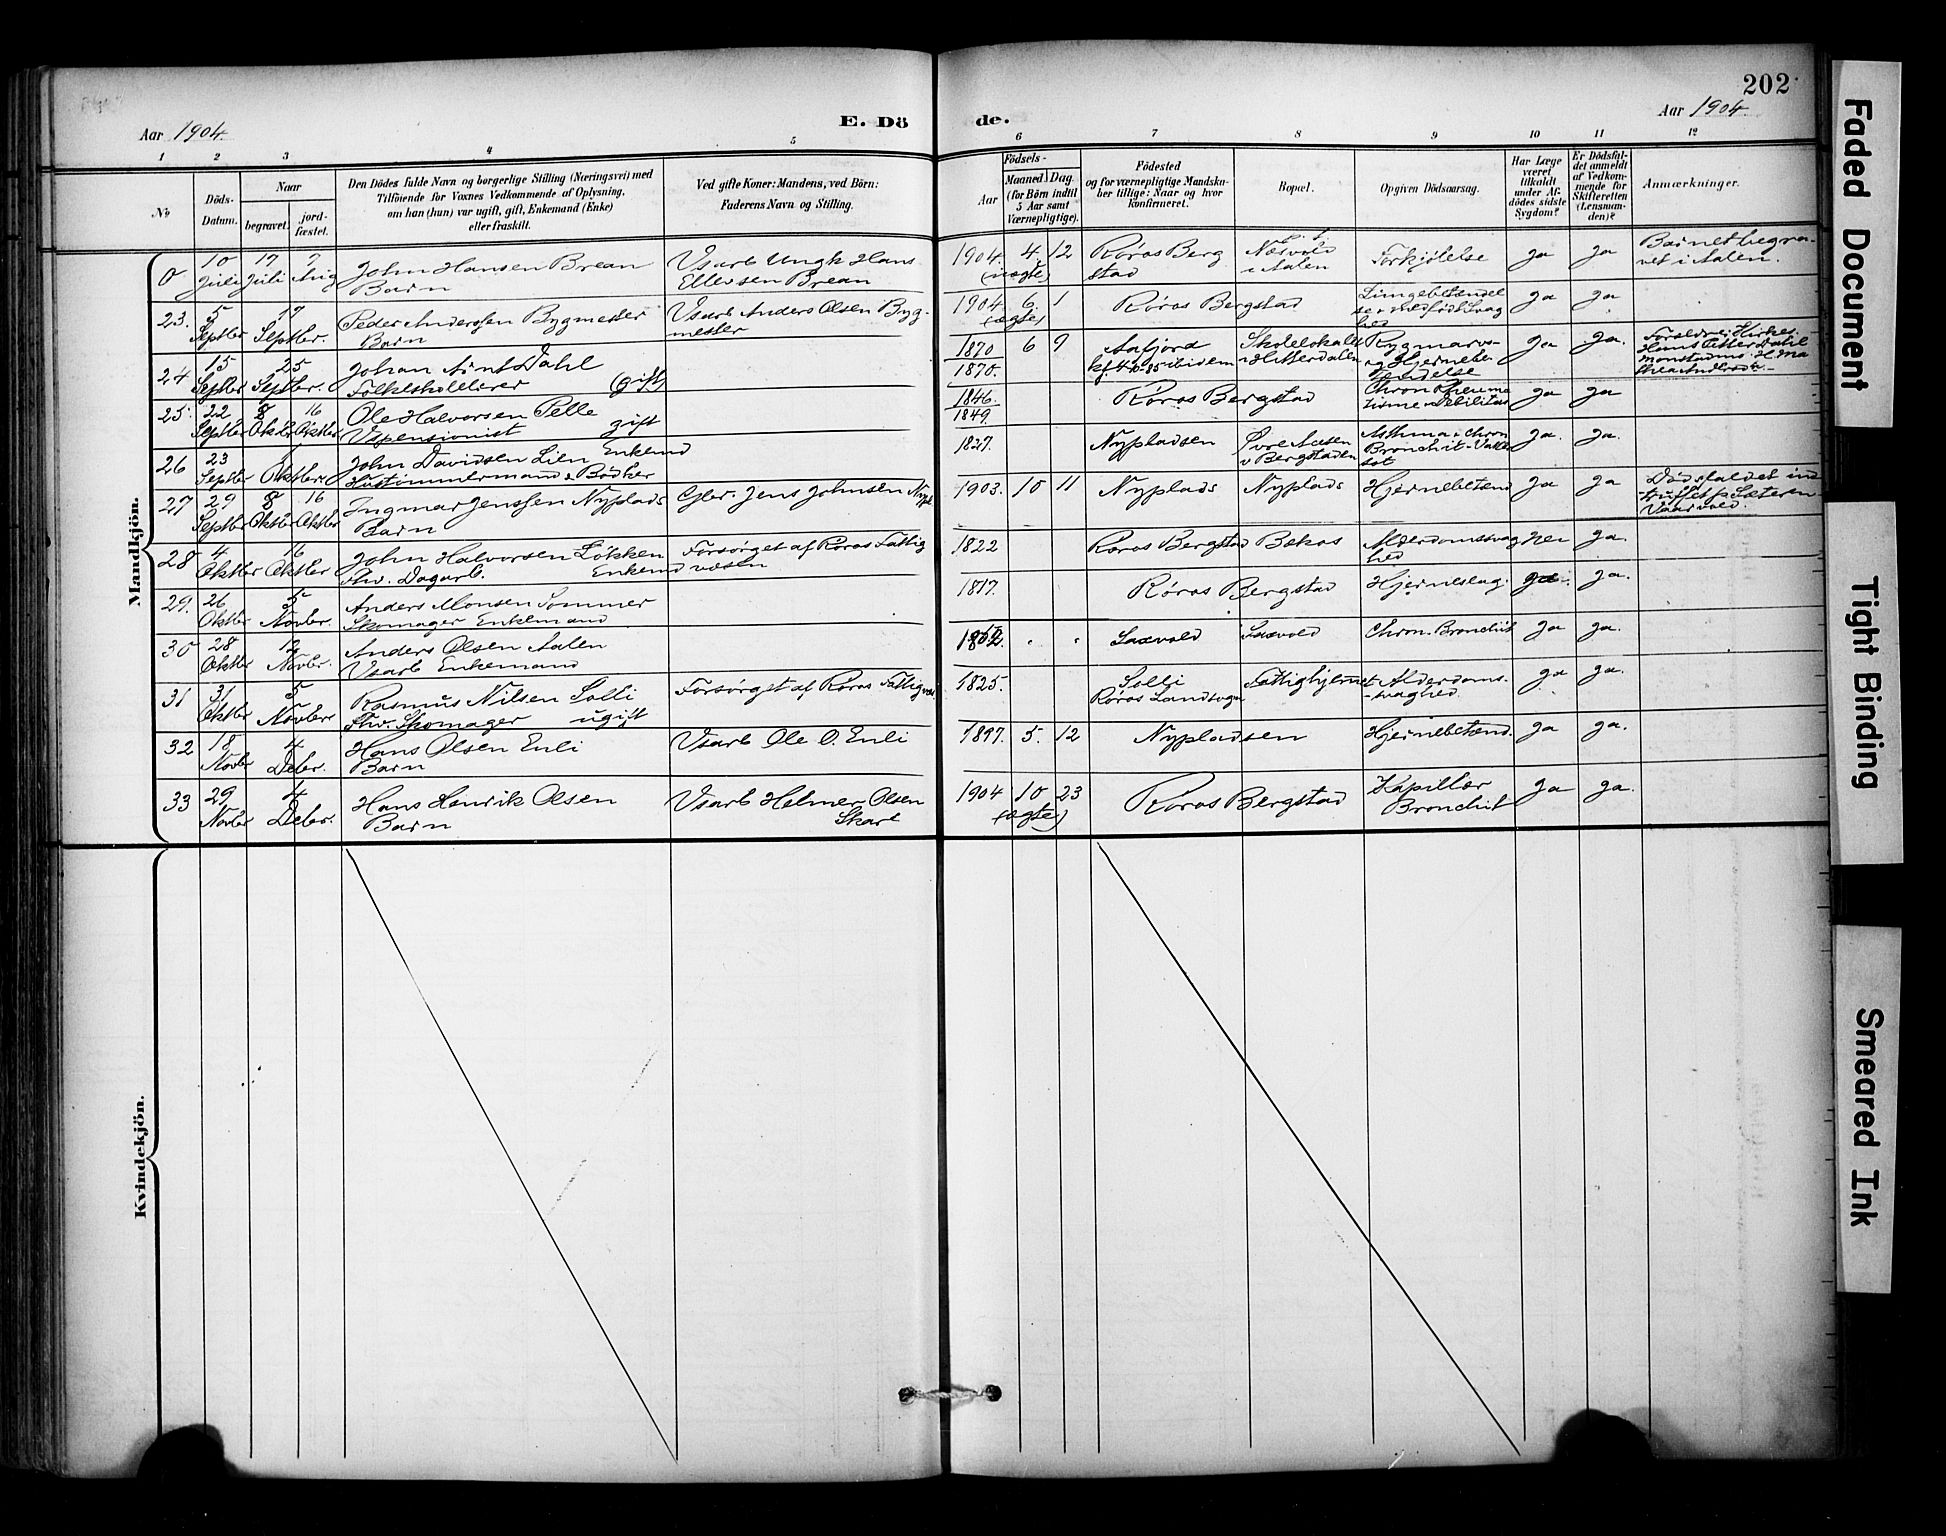 202
Aar 1904.
E. Dö
de.
Aar 1904.
1 2 3 4 5 6 7 8 9 10 11 12
No
Döds-
Datum.
Naar
begravet.
jord-
fæstet.
Den Dödes fulde Navn og borgerlige Stilling (Næringsvei) med
Tilföiende for Voxnes Vedkommende af Oplysning,
om han (hun) var ugift, gift, Enkemand (Enke)
eller fraskilt.
Ved gifte Koner: Mandens, ved Börn:
Faderens Navn og Stilling.
Födsels-
Aar
Maaned
Dag
(for Börn indtil
5 Aar samt
Værnepligtige).
Födested
og for værnepligtige Mandskaber tillige: Naar og hvor
konfirmeret.
Bopæl.
Opgiven Dödsaarsag.
Har Læge
været
tilkaldt
under Afdödes sidste
Sygdom?
Er Dödsfaldet anmeldt
af Vedkommende for
Skifteretten
(Lensmanden)?
Anmærkninger.
Mandkjön.
0 10 Juli 17 Juli 7 Aug John Hansen Brean
Barn
Vsarb Ungk Hans
Ellevsen Brean
1904. 4. 12 (uægte) Røros Berg
stad
Næsvold
i Aalen
Forkjølelse
Ja Ja
Barnet begra-
vet i Aalen.
23. 5 Septbr 17 Septbr. Peder Anderssen Bygmester
Barn
Vsarb Anders Olsen Byg-
mester
1904 6. 1 (ægte) Røros Bergstad
Ja Ja
24 15 Septbr 25 Septbr. Johan Arnt Dahl
Folkeskollerer (gift)
1870
1870.
6 9 Aafjord
Skolelokalet
i Hitterdalen
Rygmarvs-
Ja Ja.
25. 22 Septbr 8 Oktbr 16 Oktbr Ole Halvorsen Pelle
Vspensionist gift
1846.
1849.
Røros Bergstad
Ja Ja
26 23 Septbr Oktbr. John Davidsen Lien Enkemd
Hustømmermand & Bødker
1827. Nypladsen
v Bergstaden
Asthma & chron
Ja. Ja.
27 29 Septbr 8 Oktbr 16 Oktbr Ingmar Jenssen Nyplads
Barn
Gbr. Jens Johnsen Nypl
1903. 10 11 Nyplads Nyplads Hjernebetænd
Ja Ja
Dødsfaldet ind
truffet
28 4 Oktbr 16 Oktbr John Halvorsen Løkken
Fhv. Dagarb. Enkemd
Forsørget af Røros Fattig
væsen
1822 Røros Bergstad Bekos Alderdomssvag
hed
nei Ja.
29. 26 Oktbr 5 Novbr. Anders Monsen Sommer
Skomager Enkemand
1817. Røros Bergstad Hjerneslag. Ja. Ja.
30 28 Oktbr Novbr. Anders Olsen Aalen
Vsarb Enkemand
Saxvold Saxvold Chron. Bronchit Ja Ja.
31 31 Oktbr 5 Novbr. Rasmus Nilsen Solli
Fhv. Skomager ugift
Forsørget af Røros Fattigvæs
1825. Solli
Røros Landsogn
Fattighjemmet
Alderdoms-
svaghed.
Ja Ja.
32 18 Novbr 4 Debr. Hans Olsen Enli
Barn
Vsarb Ole O. Enli
1897. 5. 12 Nypladsen Hjernebetænd. Ja Ja.
33 29 Novbr 4 Debr. Hans Henrik Olsen
Barn
Vsarb Helmer Olsen
Skart
1904 10 23 (ægte) Røros Bergstad Kapillær
Bronchit
Ja Ja.
Kvindekjön.
Faded Document
Tight Binding
Smeared Ink